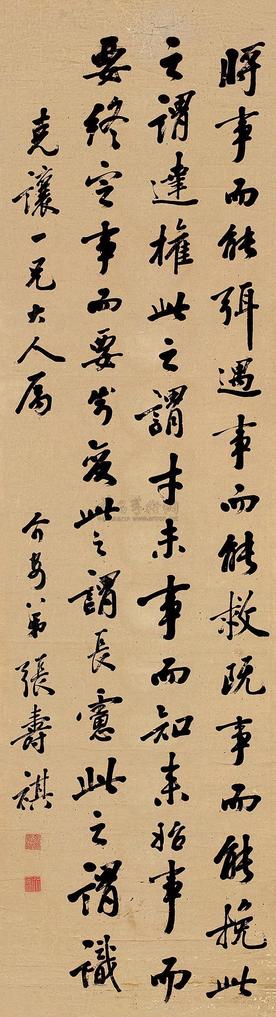 將事而能弭遇事而能救既事而能挽此
之謂達權此之謂才未事而知来始事而
要終定事而要変此之謂長慮此之謂識
克讓一兄大人属
弟張壽祺